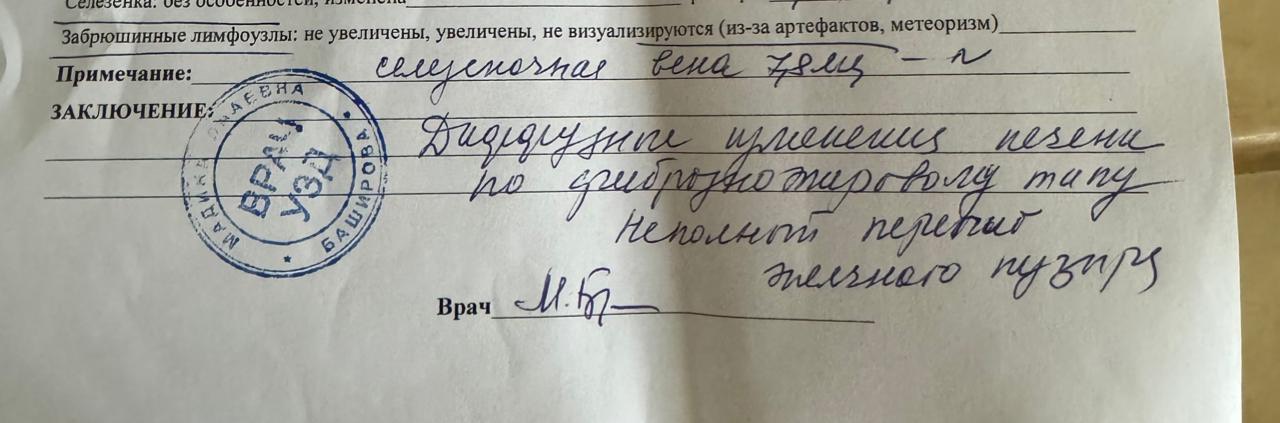 Селезенка: без особенностей, изменена
Забрюшинные лимфоузлы: не увеличены, увеличены, не визуализируются (из-за артефактов, метеоризм)
Примечание: селезеночная вена 7,8мм – N
ЗАКЛЮЧЕНИЕ:
Диффузные изменения печени
по фиброзножировому типу
Неполный перегиб
желчного пузыря
Врач М.Б
ВРАЧ
УЗД
БАШИРОВА